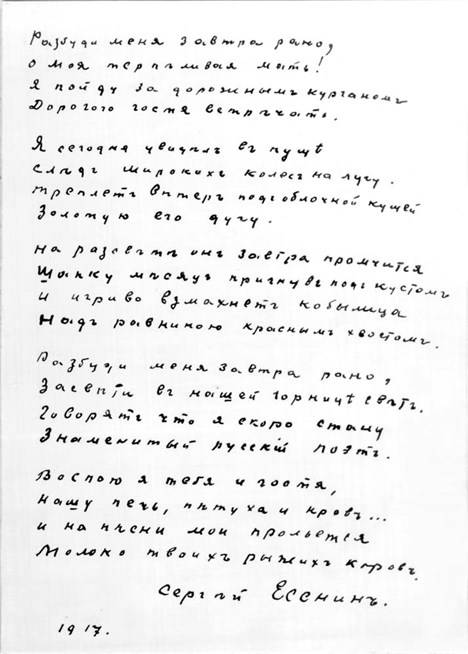 Разбуди меня завтра рано,
о моя терпѣливая мать!
Я пойду за дорожнымъ курганомъ
Дорогого гостя встрѣчать.
Я сегодня увидѣлъ въ пущѣ
слѣдъ широкихъ колесъ на лугу.
треплетъ вѣтеръ подъ облачной кущей
Золотую его дугу.
на разсвѣтѣ онъ завтра промчится
Шапку мѣсяцъ пригнувъ подъ кустомъ
и игриво взмахнетъ кобылица
Надъ равниною краснымъ хвостомъ.
Разбуди меня завтра рано,
Засвѣти въ нашей горницѣ свѣтъ.
Говорятъ что я скоро стану
Знаменитый русскій поэтъ.
Воспою я тебя и гостя,
нашу печь, пѣтуха и кровъ...
и на пѣсни мои прольется
Молоко твоихъ рыжихъ коровъ.
Сергѣй Есенинъ.
1917.